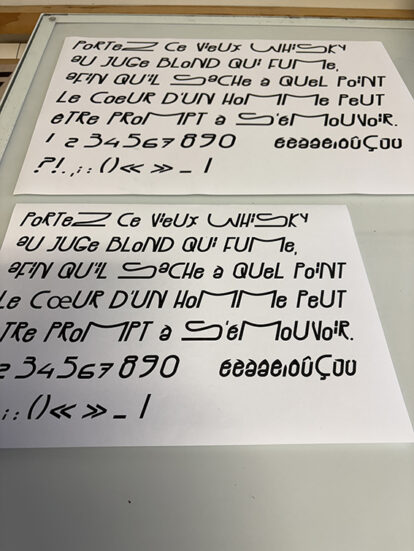 PoRTeZ Ce VieUx WHiSKy
aU JUGe BLoND QUi FUMe,
aFiN QU'iL SaCHe a QUeL PoiNT
Le CoeUR D'UN HoMMe PeUT
eTRe PRoMPT a S'eMoUVoiR.
1 2 3 4 5 6 7 8 9 0 éèàâëïôûÇùü
?!.,;:()«»_/
PoRTeZ Ce VieUx WHiSKy
aU JUGe BLoND QUi FUMe,
aFiN QU'iL SaCHe a QUeL PoiNT
Le CœUR D'UN HoMMe PeUT
TRe PRoMPT a S'eMoUVoiR.
2 3 4 5 6 7 8 9 0 éèàâëïôûÇùü
;:()«»_/